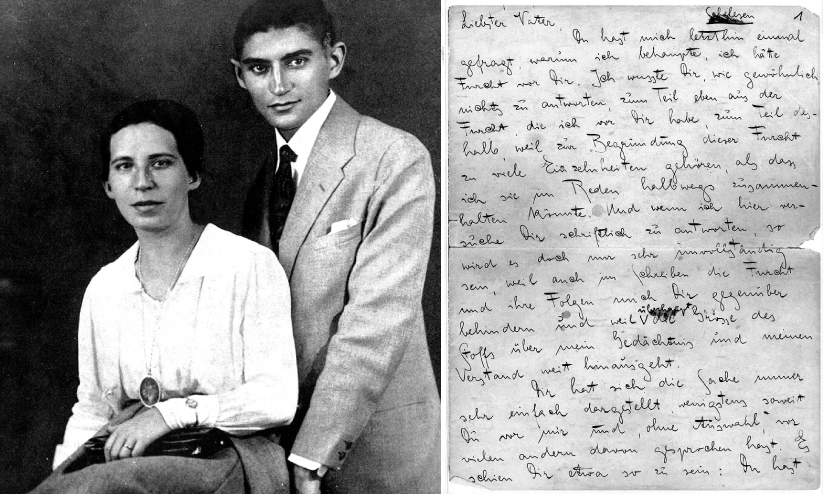 Schelesen 1
Liebster Vater,
Du hast mich letzthin einmal
gefragt, warum ich behaupte, ich hätte
Furcht vor Dir. Ich wusste Dir, wie gewöhnlich,
nichts zu antworten, zum Teil eben aus der
Furcht, die ich vor Dir habe, zum Teil des-
halb, weil zur Begründung dieser Furcht
zu viele Einzelnheiten gehören, als dass
ich sie im Reden halbwegs zusammen-
halten könnte. Und wenn ich hier ver-
suche Dir schriftlich zu antworten, so
wird es doch nur sehr unvollständig
sein, weil auch im Schreiben die Furcht
und ihre Folgen mich Dir gegenüber
behindern und weil die Grösse des
Stoffs über mein Gedächtnis und meinen
Verstand weit hinausgeht.
Dir hat sich die Sache immer
sehr einfach dargestellt, wenigstens soweit
Du vor mir und, ohne Auswahl, vor
vielen andern davon gesprochen hast. Es
schien Dir etwa so zu sein: Du hast